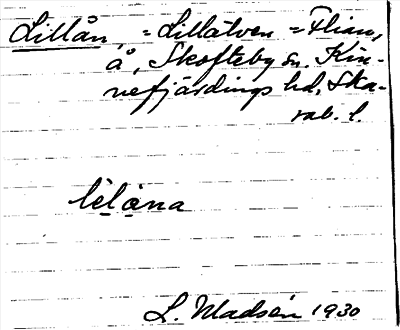 Lillån, = Lillälven = Flian,
å, Skofteby sn. Kin-
nefjärdings hd, Ska-
rab. l.
lìlǫna
L. Madsén 1930